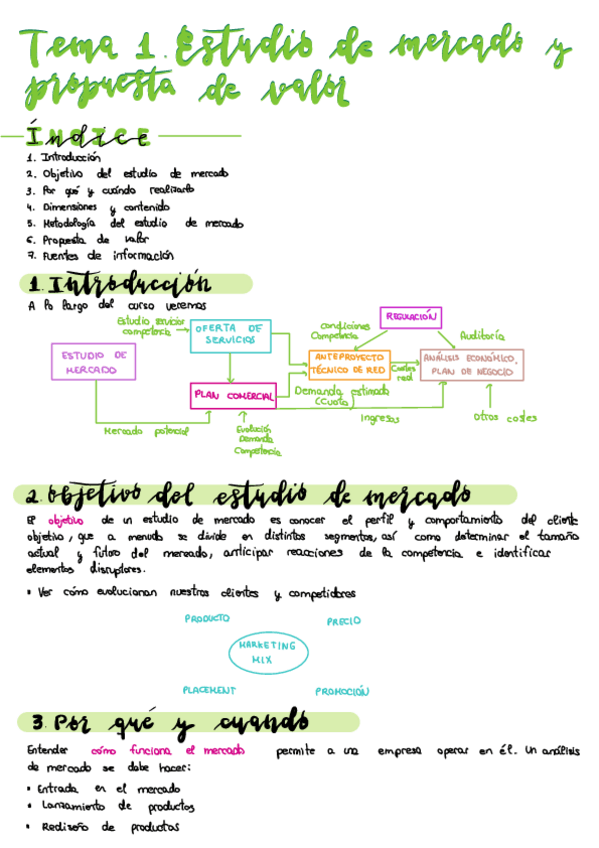 Tema 1. Estudio de mercado y
propuesta de valor
Índice
1. Introducción
2. Objetivo del estudio de mercado
3. Por qué y cuándo realizarlo
4. Dimensiones y contenido
5. Metodología del estudio de mercado
6. Propuesta de valor
7. Fuentes de información
1. Introducción
A lo largo del curso veremos
REGULACIÓN
Estudio servicios
competencia
OFERTA DE
SERVICIOS
condiciones
Competencia
Auditoría
ESTUDIO DE
MERCADO
ANTEPROYECTO
TÉCNICO DE RED
Costes
red
ANÁLISIS ECONÓMICO.
PLAN DE NEGOCIO
PLAN COMERCIAL
Demanda estimada
(Cuota)
Mercado potencial
Evolución
Demanda
Competencia
Ingresos
Otros costes
2. Objetivo del estudio de mercado
El objetivo de un estudio de mercado es conocer el perfil y comportamiento del cliente
objetivo, que a menudo se divide en distintos segmentos, así como determinar el tamaño
actual y futuro del mercado, anticipar reacciones de la competencia e identificar
elementos disruptores.
• Ver cómo evolucionan nuestros clientes y competidores
PRODUCTO
PRECIO
MARKETING
MIX
PLACEMENT
PROMOCIÓN
3. Por qué y cuando
Entender cómo funciona el mercado permite a una empresa operar en él. Un análisis
de mercado se debe hacer:
• Entrada en el mercado
• Lanzamiento de productos
• Rediseño de productos